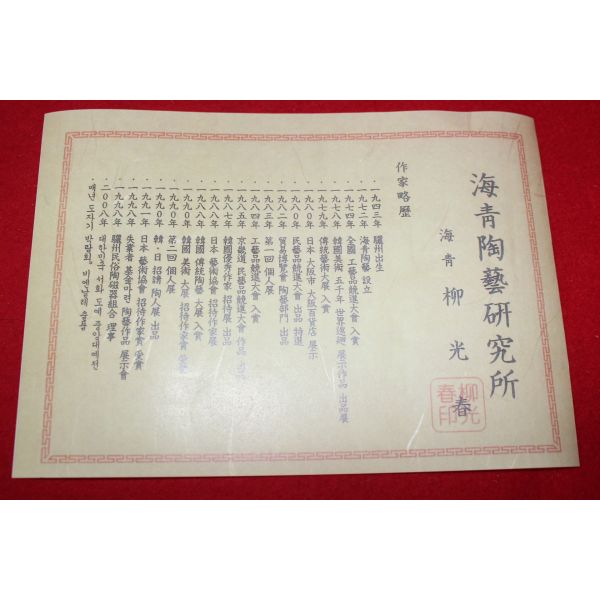 海青陶藝研究所
海青 柳光春
柳光春印
作家略歷
·一九四三年 驪州出生
·一九七二年 海青陶藝 設立
·一九七四年 全國 工藝品競進大會 入賞
·一九七八年 韓國美術 五千年 世界巡廻 展示作品 出品展
·一九八〇年 傳統藝術大展 入賞
·一九八〇年 日本 大阪市 大阪百貨店 展示
·一九八一年 民藝品競進大會 出品 特選
·一九八二年 貿易博覽會 陶藝部門 出品
·一九八三年 第一回 個人展
·一九八四年 工藝品競進大會 入賞
·一九八五年 京畿道 民藝品競進大會 作品
·一九八七年 韓國優秀作家 招待展 出品
·一九八八年 日本 藝術協會 招待作家展
·一九八八年 韓國 傳統陶藝 大展 入賞
·一九九〇年 韓國 美術 大展 招待作家賞
·一九九〇年 第二回 個人展
·一九九〇年 韓·日 招請 陶人展 出品
·一九九一年 日本 藝術協會 招待作家賞 受賞
·一九九八年 失業者 基金마련 陶藝作品 展示會
·一九九八年 驪州民俗陶磁器組合 理事
·二〇〇八年 대한민국 서화 도예 중앙대예전
·매년 도자기 박람회, 비엔날레 출품